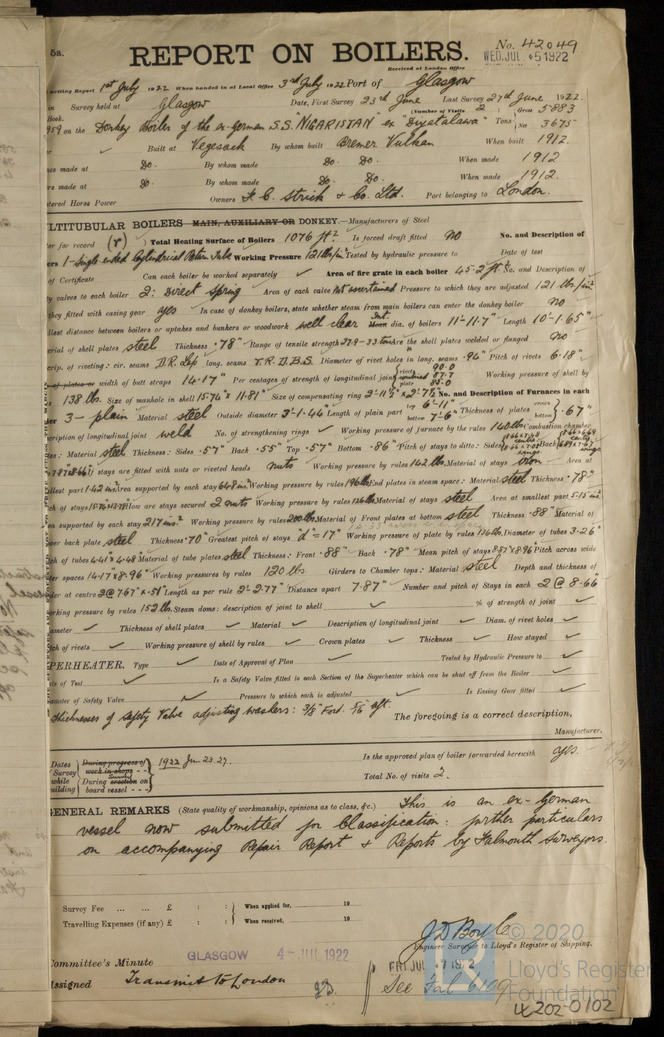 5a.
REPORT ON BOILERS.
No. 42049
Received at London Office WED. JUL 5 1922
writing Report 1st July 1922 When handed in at Local Office 3rd July 1922 Port of Glasgow
in Survey held at Glasgow Date, First Survey 23rd June Last Survey 27th June 1922.
Book. (Number of Visits 2) Gross 5883
959 on the Donkey Boiler of the ex-German S.S. "NIGARISTAN" ex Tons Net 3675
Built at Vegesack By whom built Bremer Vulkan When built 1912.
made at Do. By whom made Do. Do. When made 1912
made at Do. By whom made Do. Do. When made 1912.
Horse Power Owners F. C. Strick & Co. Ltd. Port belonging to London.
LTITUBULAR BOILERS MAIN, AUXILIARY OR DONKEY.—Manufacturers of Steel
for record (r) Total Heating Surface of Boilers 1076 ft² Is forced draft fitted No No. and Description of
1 - Single ended Cylindrical Return Tube Working Pressure 121 lbs/in² Tested by hydraulic pressure to Date of test
of Certificate Can each boiler be worked separately ✓ Area of fire grate in each boiler 45.2 ft² No. and Description of
valves to each boiler 2: Direct spring Area of each valve Not ascertained Pressure to which they are adjusted 121 lbs/in²
they fitted with easing gear yes In case of donkey boilers, state whether steam from main boilers can enter the donkey boiler no
llest distance between boilers or uptakes and bunkers or woodwork well clear Int. Mean dia. of boilers 11'-11.7" Length 10'-1.65"
erial of shell plates steel Thickness .78" Range of tensile strength Are the shell plates welded or flanged no
crip. of riveting: cir. seams D.R. Lap long. seams T.R.D.B.S. Diameter of rivet holes in long. seams .96" Pitch of rivets 6.18"
of plates or width of butt straps 14.17" Per centages of strength of longitudinal joint rivets 90.0 87.7 plate 85.0 Working pressure of shell by
138 lbs. Size of manhole in shell 15.74" x 11.81" Size of compensating ring 2'-11½" x 2'-7½" No. and Description of Furnaces in each
3 - plain Material steel Outside diameter 3'-1.44 Length of plain part top 6'-11" bottom 7'-6" Thickness of plates crown bottom .67"
cription of longitudinal joint weld No. of strengthening rings ✓ Working pressure of furnace by the rules 140 lbs Combustion chamber
: Material steel Thickness: Sides .57" Back .55" Top .57" Bottom .86" Pitch of stays to ditto: Sides Back
If stays are fitted with nuts or riveted heads nuts Working pressure by rules 142 lbs. Material of stays iron Area at
llest part 1.42 ins² Area supported by each stay Working pressure by rules End plates in steam space: Material steel Thickness .78"
ch of stays How are stays secured 2 nuts Working pressure by rules Material of stays steel Area at smallest part 5.15 ins²
supported by each stay 217 ins² Working pressure by rules 200 lbs Material of Front plates at bottom steel Thickness .88" Material of
back plate steel Thickness .70" Greatest pitch of stays "d" = 17" Working pressure of plate by rules Diameter of tubes 3.26"
ch of tubes 4.41 x 4.48 Material of tube plates steel Thickness: Front .88" Back .78" Mean pitch of stays Pitch across wide
er spaces 14.17" x 8.96" Working pressures by rules 120 lbs Girders to Chamber tops: Material steel Depth and thickness of
er at centre 2 @ 7.67" x .51" Length as per rule 2'-2.77" Distance apart 7.87" Number and pitch of Stays in each 2 @ 8.66
rking pressure by rules 152 lbs. Steam dome: description of joint to shell ✓ % of strength of joint ✓
ameter ✓ Thickness of shell plates ✓ Material ✓ Description of longitudinal joint ✓ Diam. of rivet holes ✓
ch of rivets ✓ Working pressure of shell by rules ✓ Crown plates ✓ Thickness ✓ How stayed ✓
PERHEATER. Type ✓ Date of Approval of Plan ✓ Tested by Hydraulic Pressure to ✓
te of Test ✓ Is a Safety Valve fitted to each Section of the Superheater which can be shut off from the Boiler ✓
ameter of Safety Valve ✓ Pressure to which each is adjusted ✓ Is Easing Gear fitted ✓
Thicknesses of safety Valve adjusting washers: 3/8" Ford. 5/16" aft. The foregoing is a correct description,
Manufacturer.
Dates of Survey while building During progress of work in shops - - During erection on board vessel - - 1922 Jun 23. 27. Is the approved plan of boiler forwarded herewith yes.
Total No. of visits 2.
GENERAL REMARKS (State quality of workmanship, opinions as to class, &c.) This is an ex-German
vessel now submitted for Classification: further particulars
on accompanying Repair Report & Reports by Falmouth Surveyors.
Survey Fee ... ... £ : : When applied for, 19
Travelling Expenses (if any) £ : : When received, 19
J D Boyle
Engineer Surveyor to Lloyd's Register of Shipping.
Committee's Minute GLASGOW 4 - JUL 1922 FRI. JUL 7 1922
Assigned Transmit to London See Fal 6109
© 2020
Lloyd's Register
Foundation
202-0102